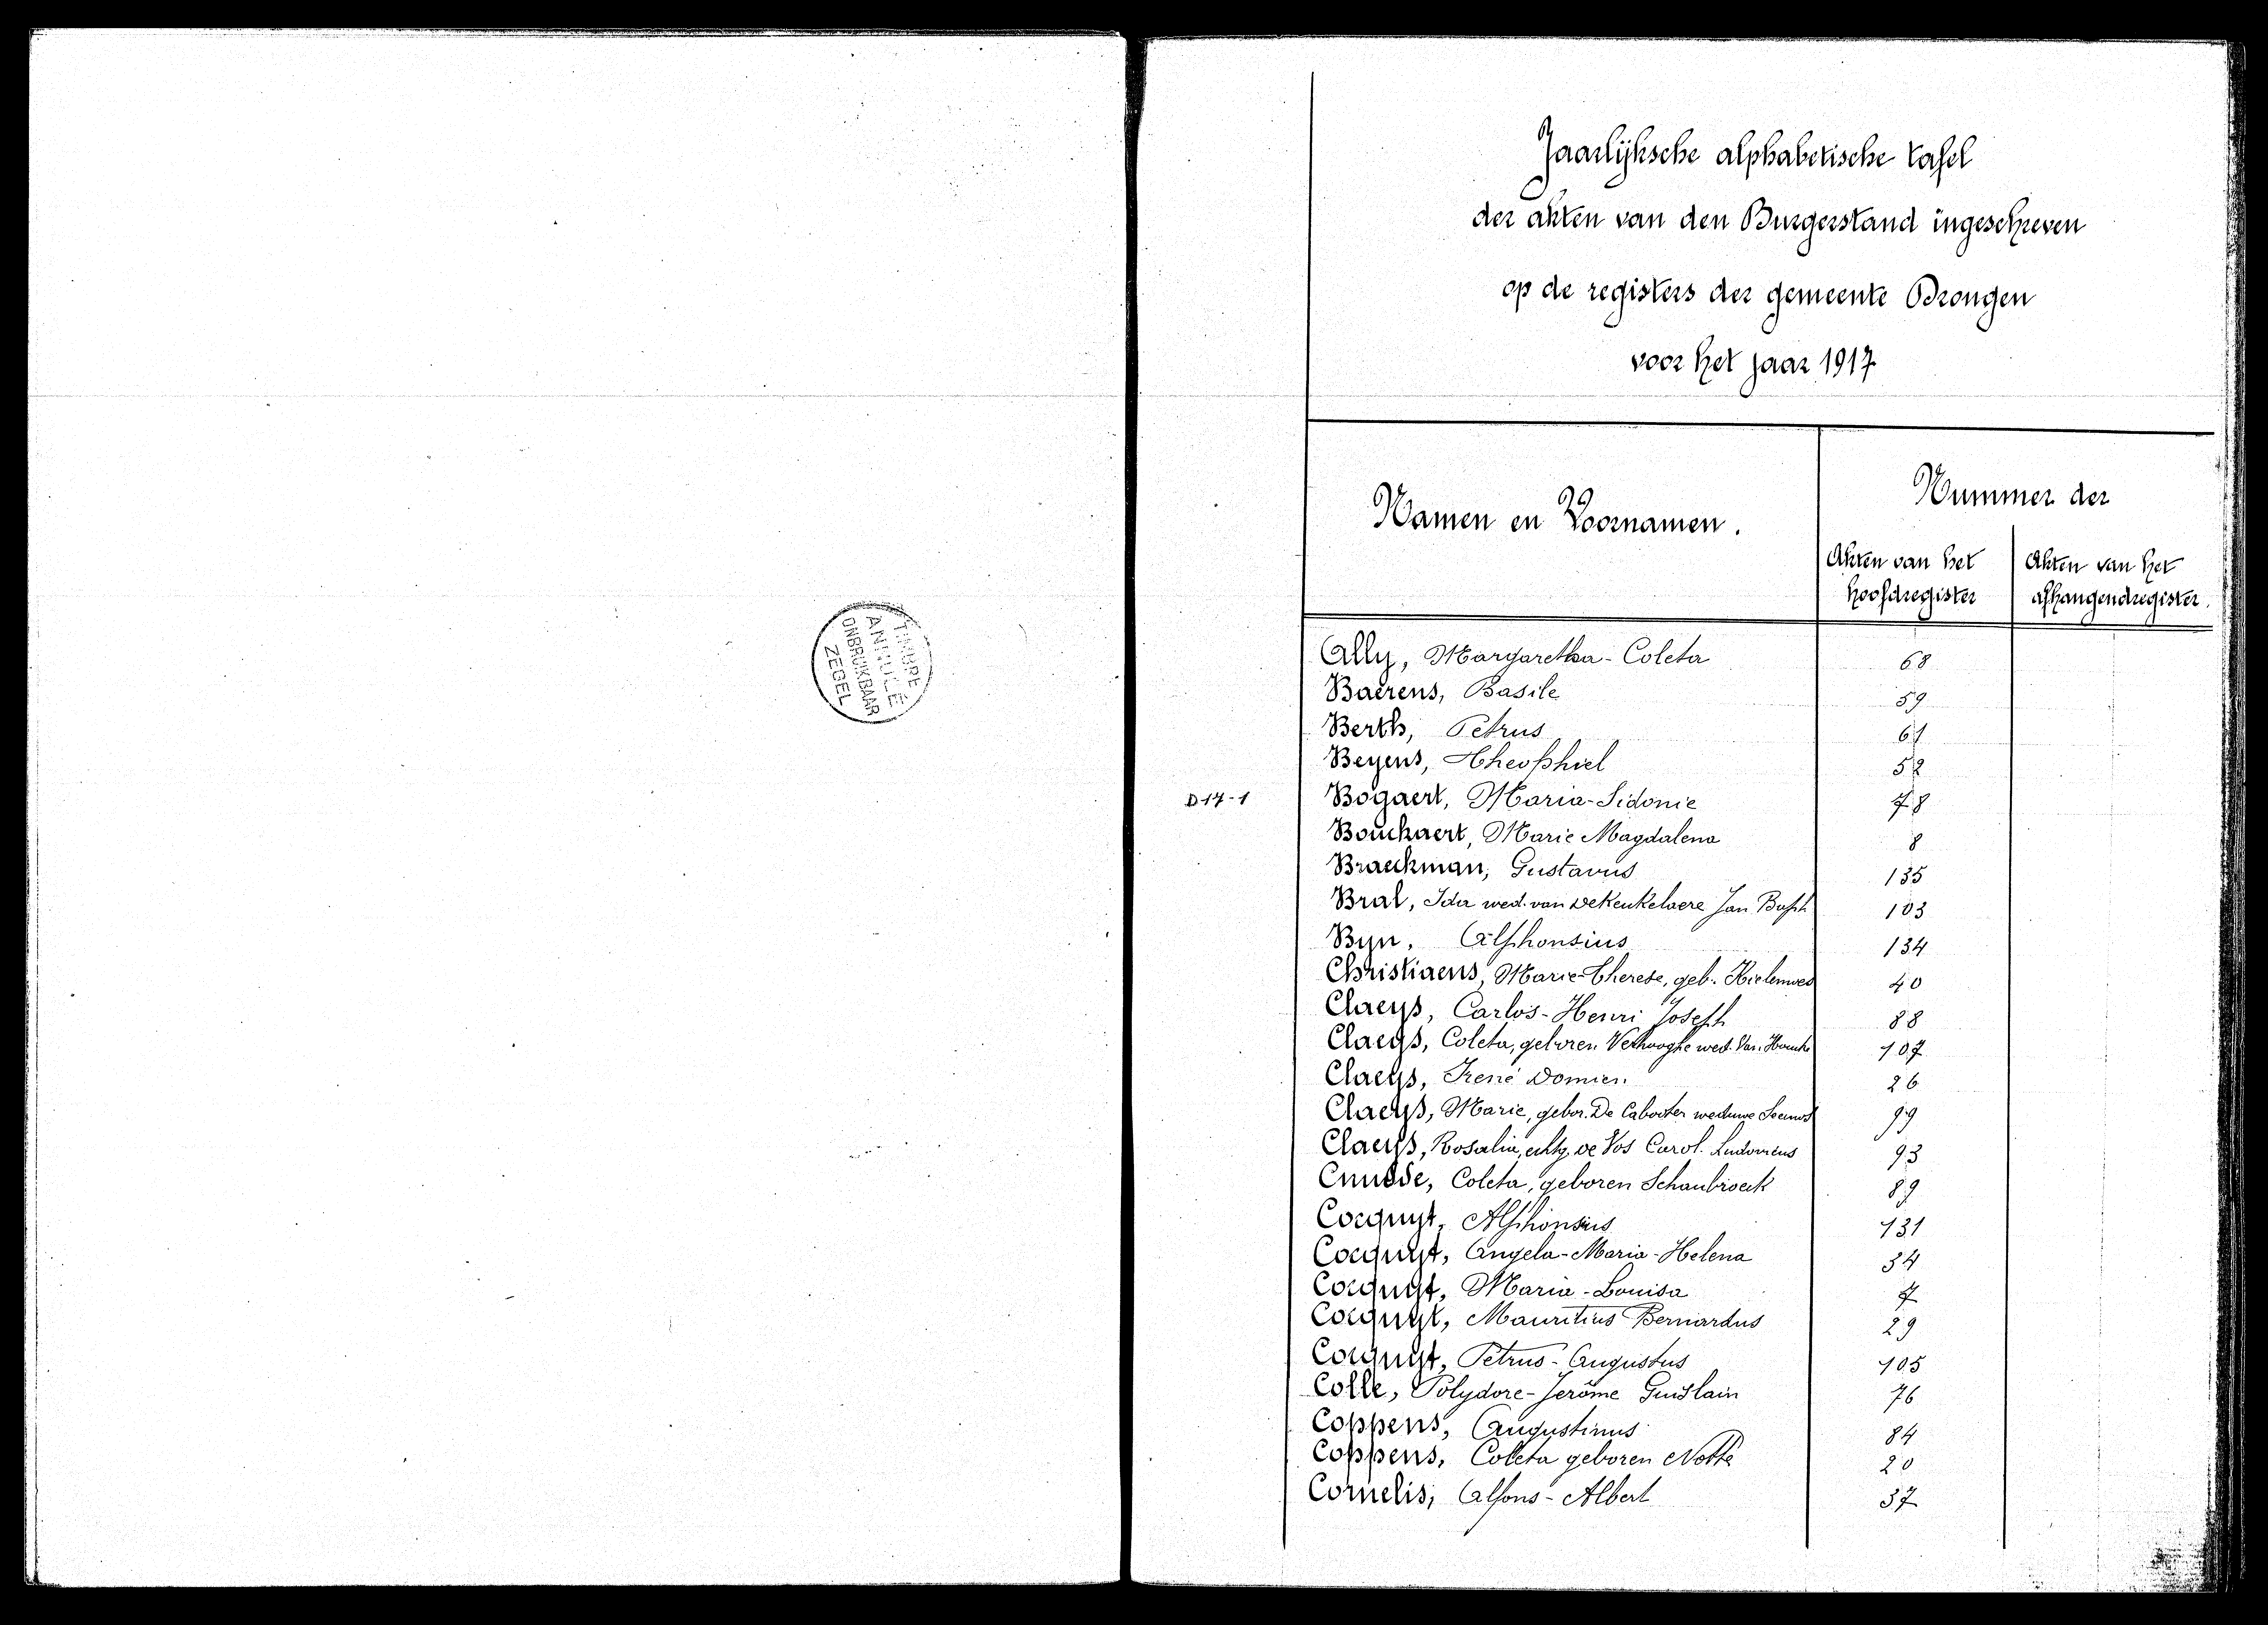 TIMBRE
ANNULÉ
ONBRUIKBAAR
ZEGEL
Jaarlijksche alphabetische tafel
der akten van den Burgerstand ingeschreven
op de registers der gemeente Drongen
voor het jaar 1917
Namen en Voornamen.
Nummer der
Akten van het hoofdregister
Akten van het afhangendregister.
Ally, Margaretha-Coleta 68
Baerens, Basile 59
Berth, Petrus 61
Beyens, Theophiel 52
D17-1 Bogaert, Maria-Sidonie 78
Bouckaert, Marie Magdalena 8
Braeckman, Gustavus 135
Bral, Ida wed. van DeKeukelaere Jan Bapt 103
Byn, Alphonsius 134
Christiaens, Marie-Therese, geb. 40
Claeys, Carlos-Henri Joseph 88
Claeys, Coleta, geboren Verhooghe wed. Van Houcke 107
Claeys, Irené Domien 26
Claeys, Marie, gebor. De Cabooter weduwe 99
Claeys, Rosalia, echtg. De Vos Carol. Ludovicus 93
Cnudde, Coleta, geboren Schaubroeck 89
Cocquyt, Alphonsius 131
Cocquyt, Angela-Maria-Helena 34
Cocquyt, Maria-Louisa 7
Cocquyt, Mauritius Bernardus 29
Cocquyt, Petrus-Augustus 105
Colle, Polydore-Jerôme Guislain 76
Coppens, Augustinus 84
Coppens, Coleta geboren Notte 20
Cornelis, Alfons-Albert 37